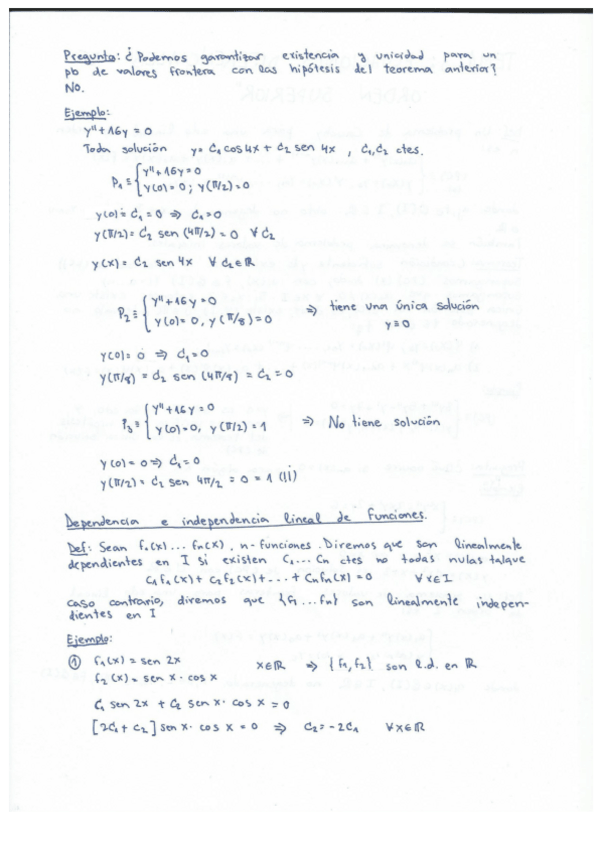 Pregunta: ¿Podemos garantizar existencia y unicidad para un
pb de valores frontera con las hipótesis del teorema anterior?
No.
Ejemplo:
y''+16y=0
Toda solución y= C1 cos 4x + C2 sen 4x , C1, C2 ctes.
P1 ≡ { y''+16y=0
y(0)=0 ; y(π/2)=0
y(0)= C1 = 0 ⇒ C1=0
y(π/2)= C2 sen (4π/2) = 0 ∀ C2
y(x)= C2 sen 4x ∀ C2 ∈ ℝ
P2 ≡ { y''+16y=0
y(0)=0, y(π/8)=0 ⇒ tiene una única solución
y≡0
y(0)= 0 ⇒ C1=0
y(π/8) = C2 sen (4π/8) = C2 = 0
P3 ≡ { y''+16y=0
y(0)=0; y(π/2)=1 ⇒ No tiene solución
y(0)=0 ⇒ C1=0
y(π/2)= C2 sen 4π/2 = 0 = 1 (!!)
Dependencia e independencia lineal de funciones.
Def: Sean f1(x)... fn(x), n-funciones. Diremos que son linealmente
dependientes en I si existen C1... Cn ctes no todas nulas tal que
C1 f1(x) + C2 f2(x) + ... + Cn fn(x) = 0 ∀x∈I
caso contrario, diremos que {f1...fn} son linealmente indepen-
dientes en I
Ejemplo:
① f1(x) = sen 2x x∈ℝ ⇒ {f1, f2} son l.d. en ℝ
f2(x) = sen x · cos x
C1 sen 2x + C2 sen x · cos x = 0
[2C1 + C2] sen x · cos x = 0 ⇒ C2 = -2C1 ∀x∈ℝ